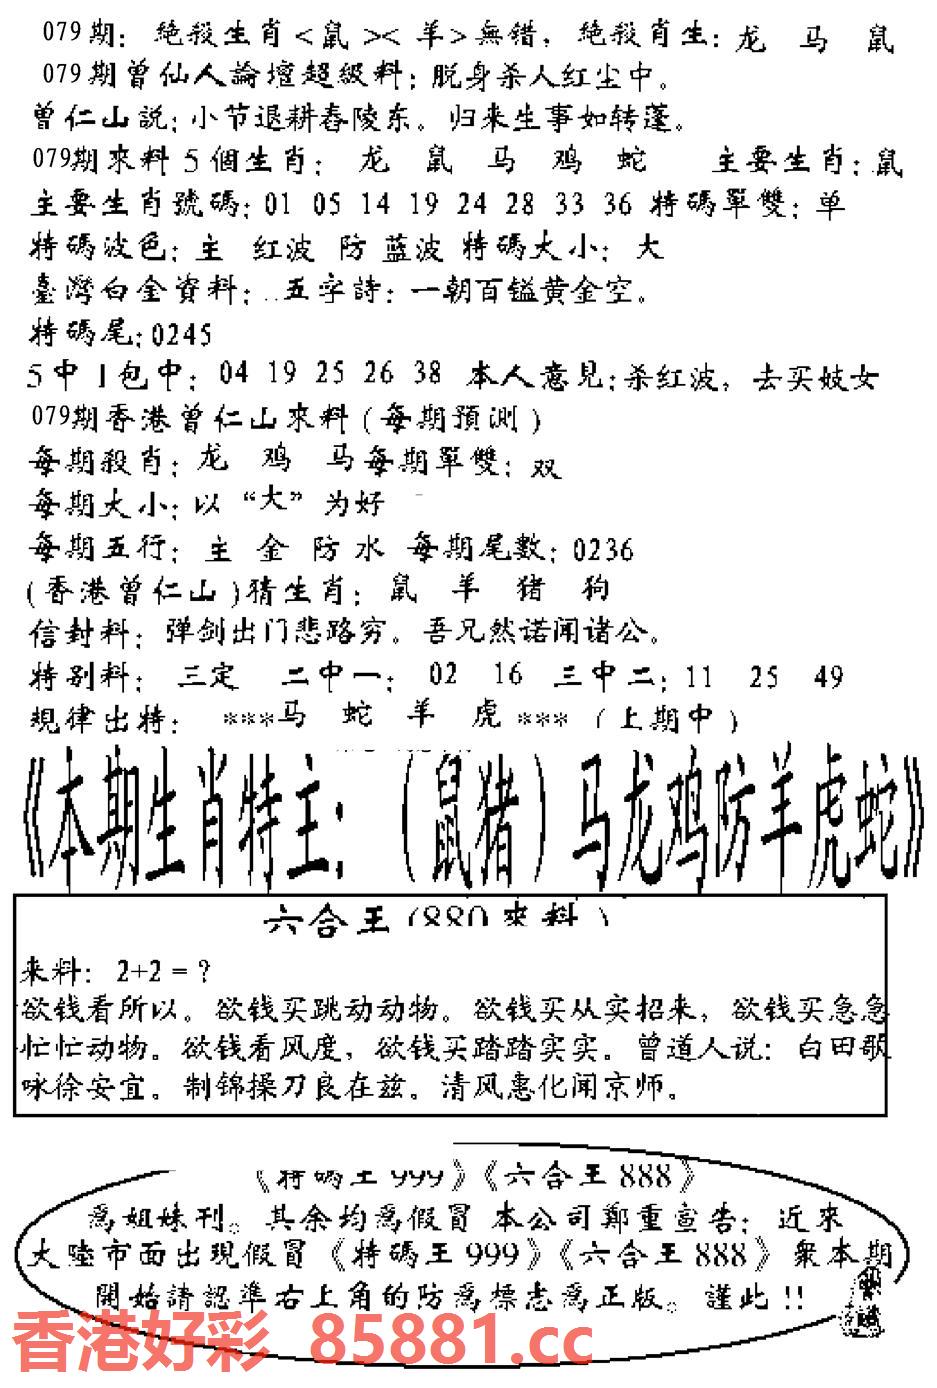 079期：絶殺生肖<鼠><羊>無錯，絶殺肖生：龙 马 鼠
079期曾仙人論壇超級料：脱身杀人红尘中。
曾仁山説：小节退耕舂陵东。归来生事如转蓬。
079期來料5個生肖：龙 鼠 马 鸡 蛇 主要生肖：鼠
主要生肖號碼：01 05 14 19 24 28 33 36 特碼單雙：单
特碼波色：主 红波 防 蓝波 特碼大小：大
臺灣白金資料：..五字詩：一朝百镒黄金空。
特碼尾：0245
5中1包中：04 19 25 26 38 本人意見：杀红波，去买妓女
079期香港曾仁山來料(每期預測)
每期殺肖：龙 鸡 马 每期單雙：双
每期大小：以“大”为好
每期五行：主 金 防 水 每期尾數：0236
(香港曾仁山)猜生肖：鼠 羊 猪 狗
信封料：弹剑出门悲路穷。吾兄然诺闻诸公。
特别料：三定 二中一：02 16 三中二：11 25 49
規律出特：***马 蛇 羊 虎***（上期中）
《本期生肖特主：（鼠猪）马龙鸡防羊虎蛇》
六合王(880來料)
来料：2+2=？
欲钱看所以。欲钱买跳动动物。欲钱买从实招来，欲钱买急急
忙忙动物。欲钱看风度，欲钱买踏踏实实。曾道人说：白田歌
咏徐安宜。制锦操刀良在兹。清风惠化闻京师。
《特碼王999》《六合王888》
爲姐妹刊。其余均爲假冒 本公司鄭重宣告：近來
大陸市面出現假冒《特碼王999》《六合王888》衆本期
開始請認準右上角的防爲標志爲正版。謹此!!
香港好彩 85881.cc